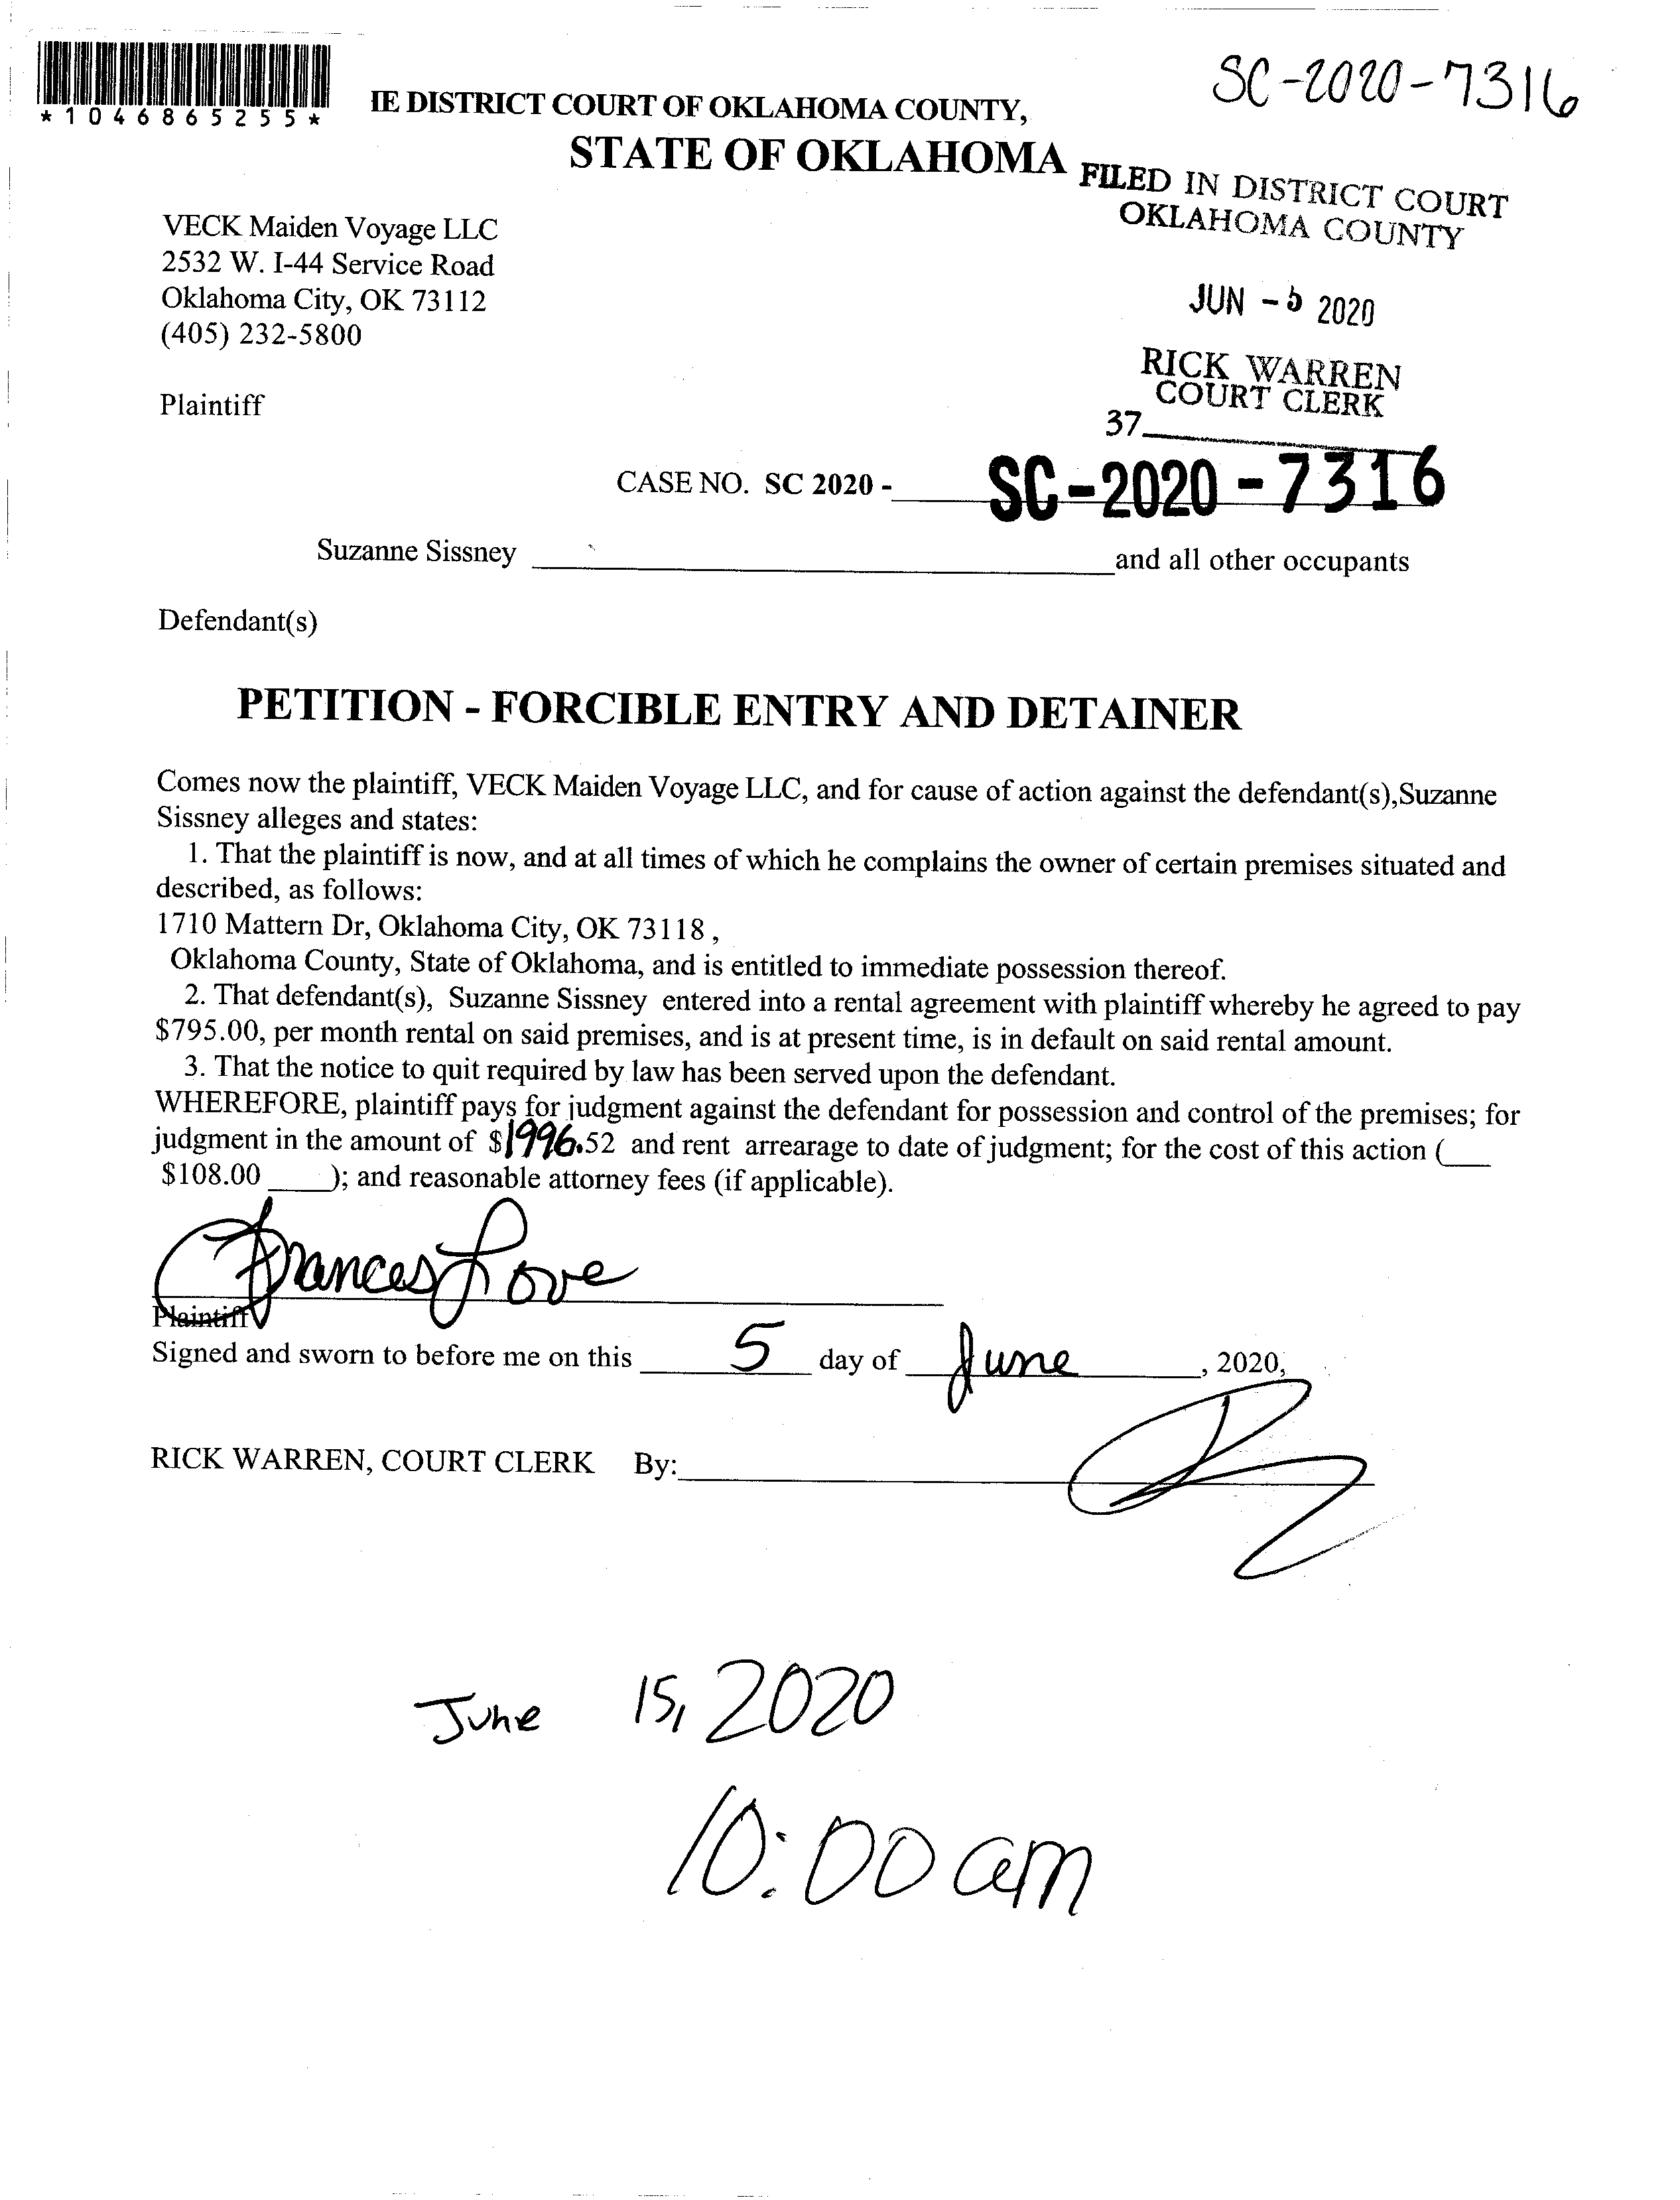 SC-2020-7316
*1046865255*
IE DISTRICT COURT OF OKLAHOMA COUNTY,
STATE OF OKLAHOMA
FILED IN DISTRICT COURT
OKLAHOMA COUNTY
VECK Maiden Voyage LLC
2532 W. I-44 Service Road
Oklahoma City, OK 73112
(405) 232-5800
JUN -5 2020
RICK WARREN
COURT CLERK
Plaintiff
37
CASE NO. SC 2020 - SC-2020-7316
Suzanne Sissney and all other occupants
Defendant(s)
PETITION - FORCIBLE ENTRY AND DETAINER
Comes now the plaintiff, VECK Maiden Voyage LLC, and for cause of action against the defendant(s),Suzanne
Sissney alleges and states:
1. That the plaintiff is now, and at all times of which he complains the owner of certain premises situated and
described, as follows:
1710 Mattern Dr, Oklahoma City, OK 73118 ,
Oklahoma County, State of Oklahoma, and is entitled to immediate possession thereof.
2. That defendant(s), Suzanne Sissney entered into a rental agreement with plaintiff whereby he agreed to pay
$795.00, per month rental on said premises, and is at present time, is in default on said rental amount.
3. That the notice to quit required by law has been served upon the defendant.
WHEREFORE, plaintiff pays for judgment against the defendant for possession and control of the premises; for
judgment in the amount of $1996.52 and rent arrearage to date of judgment; for the cost of this action (___
$108.00 ____); and reasonable attorney fees (if applicable).
Frances Love
Plaintiff
Signed and sworn to before me on this 5 day of June, 2020,
RICK WARREN, COURT CLERK By:
June 15, 2020
10:00 am